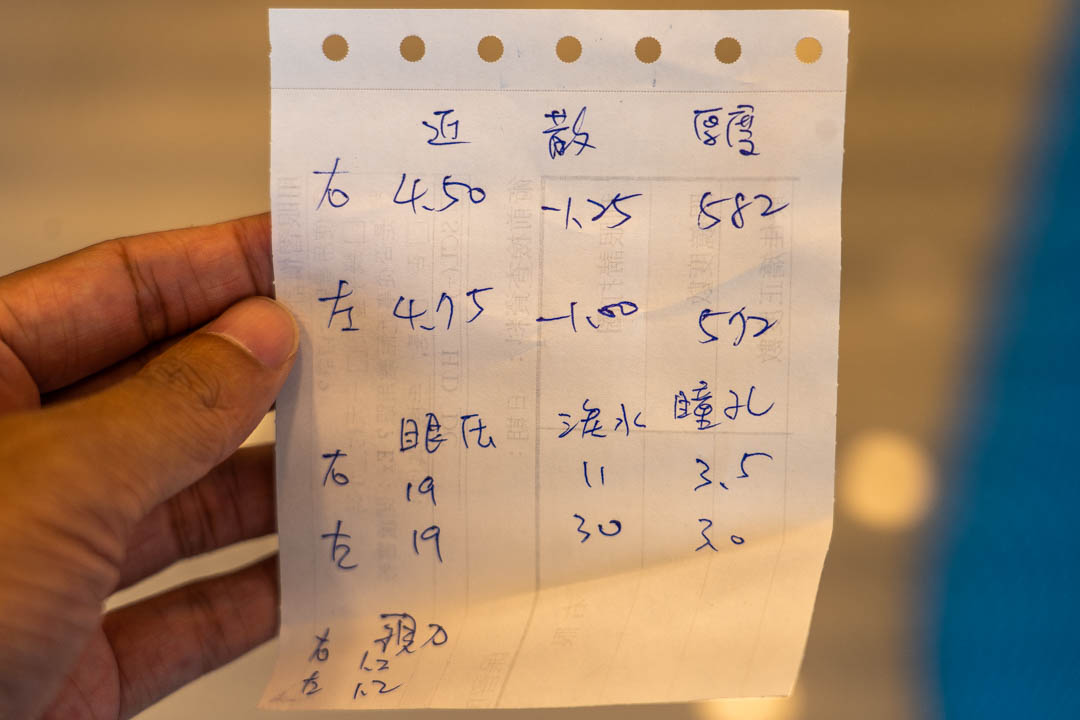 近 散 厚度
右 4.50 -1.25 582
左 4.75 -1.00 592
眼压 淚水 瞳孔
右 19 11 3.5
左 19 30 3.0
視力
右 1.2
左 1.2